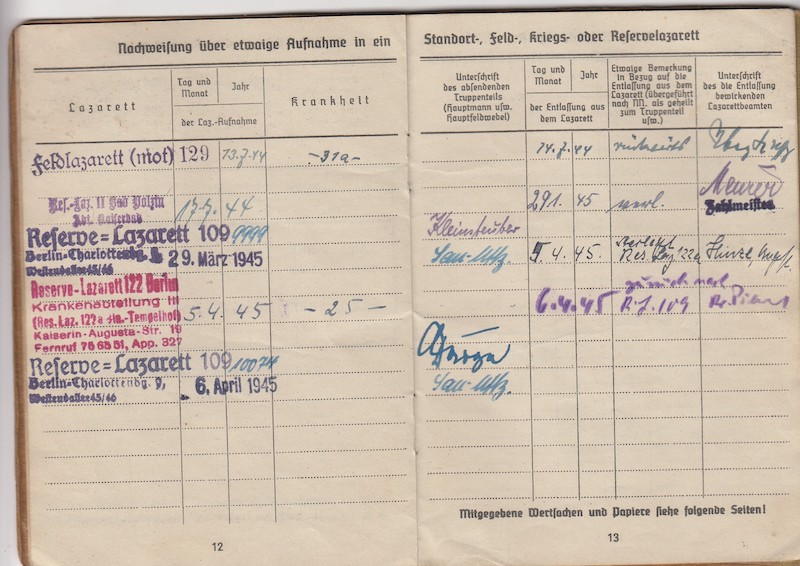 Nachweisung über etwaige Aufnahme in ein
Lazarett
Tag und
Monat
Jahr
der Laz.-Aufnahme
Krankheit
Feldlazarett (mot) 129 13.7.44 -31a-
Res.-Laz. II Bad Polzin
Abt. Kaiserbad
17.7. 44
Reserve=Lazarett 109 9999
Berlin-Charlottenbg. 9,
29. März 1945
Westendallee 45/46
Reserve-Lazarett 122 Berlin
Krankenabteilung III
(Res. Laz. 122a Bln.-Tempelhof) 5.4. 45 -25-
Kaiserin-Augusta-Str. 19
Fernruf 75 65 51, App. 327
Reserve=Lazarett 109 10074
Berlin-Charlottenbg. 9, 6. April 1945
Westendallee 45/46
12
Standort-, Feld-, Kriegs- oder Reservelazarett
Unterschrift
des absendenden
Truppenteils
(Hauptmann usw.
Hauptfeldwebel)
Tag und
Monat
Jahr
der Entlassung aus
dem Lazarett
Etwaige Bemerkung
in Bezug auf die
Entlassung aus dem
Lazarett (übergeführt
nach NN. als geheilt
zum Truppenteil
usw.)
Unterschrift
des die Entlassung
bewirkenden
Lazarettbeamten
14.7.44 rückwärts
29.1. 45 verl.
Zahlmeister
Kleinsteuber
San.-Uffz. 5 4. 45. verlegt
Res. Laz. 122a
6.4.45 zurück verl.
R.L. 109
San.-Uffz.
Mitgegebene Wertsachen und Papiere siehe folgende Seiten!
13